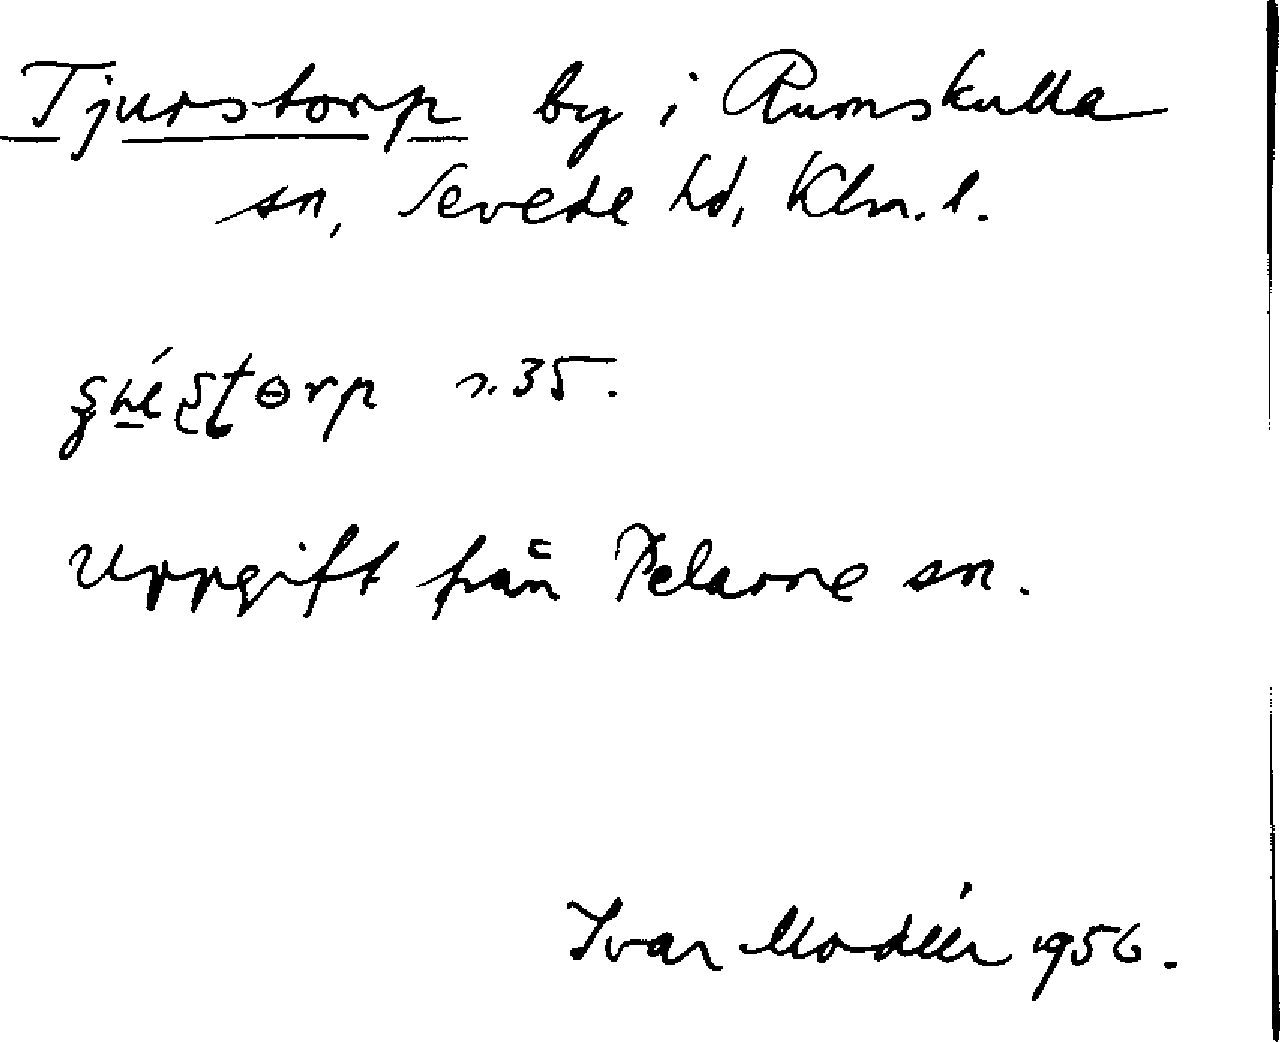 Tjurstorp by i Rumskulla
sn, Sevede hd, Klm. l.
n. 35.
Uppgift från Pelarne sn.
Ivar Modéer 1956.